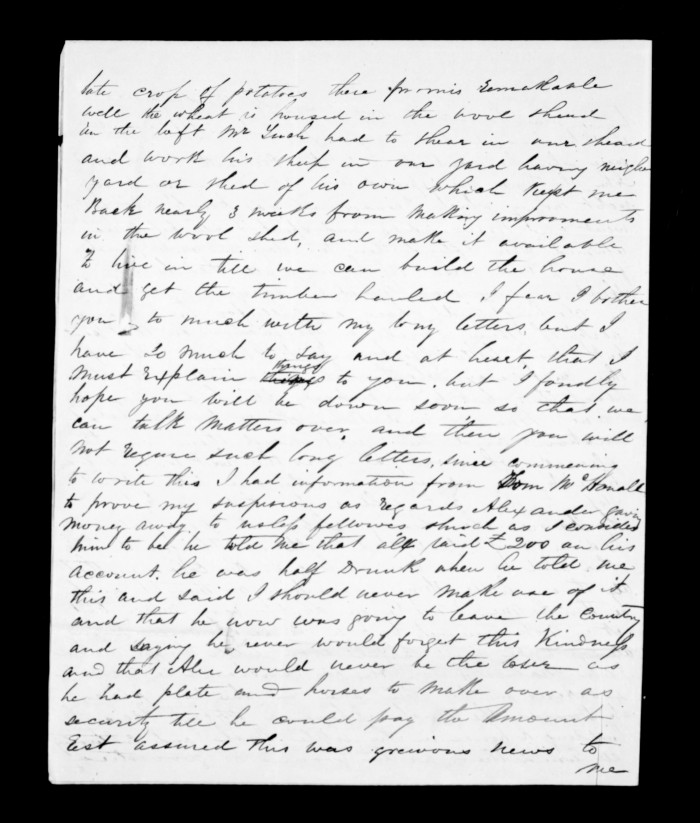 late crop of potatoes there promis remarkable
well the wheat is housed in the wool shead
in the loft Mr Tuch had to shear in our shead
and work his shup in our yard having neigher
yard or shed of his own which kept me
Back nearly 3 weeks from making improoments
in the wool shed, and make it available
to live in till we can build the house
and get the timber hauled I fear I bother
you to much with my long letters but I
have so much to say and at heart, that I
must explain things to you, but I fondly
hope you will be down soon so that we
can talk matters over, and then you will
not require such long letters, since commencing
to write this I had information from Tom McDonald
to prove my suspisions as regards Alexander gaving
money away to usless fellowes shuch as I consider
him to be he told me that alex paid £200 on his
account. he was half Drunk when he told me
this and said I should never make use of it
and that he now was going to leave the country
and saying he never would forget this Kindness
and that Alex would never be the loser as
he had plate and horses to make over as
security till he could pay the amount
Rest assured this was greivous news to
me